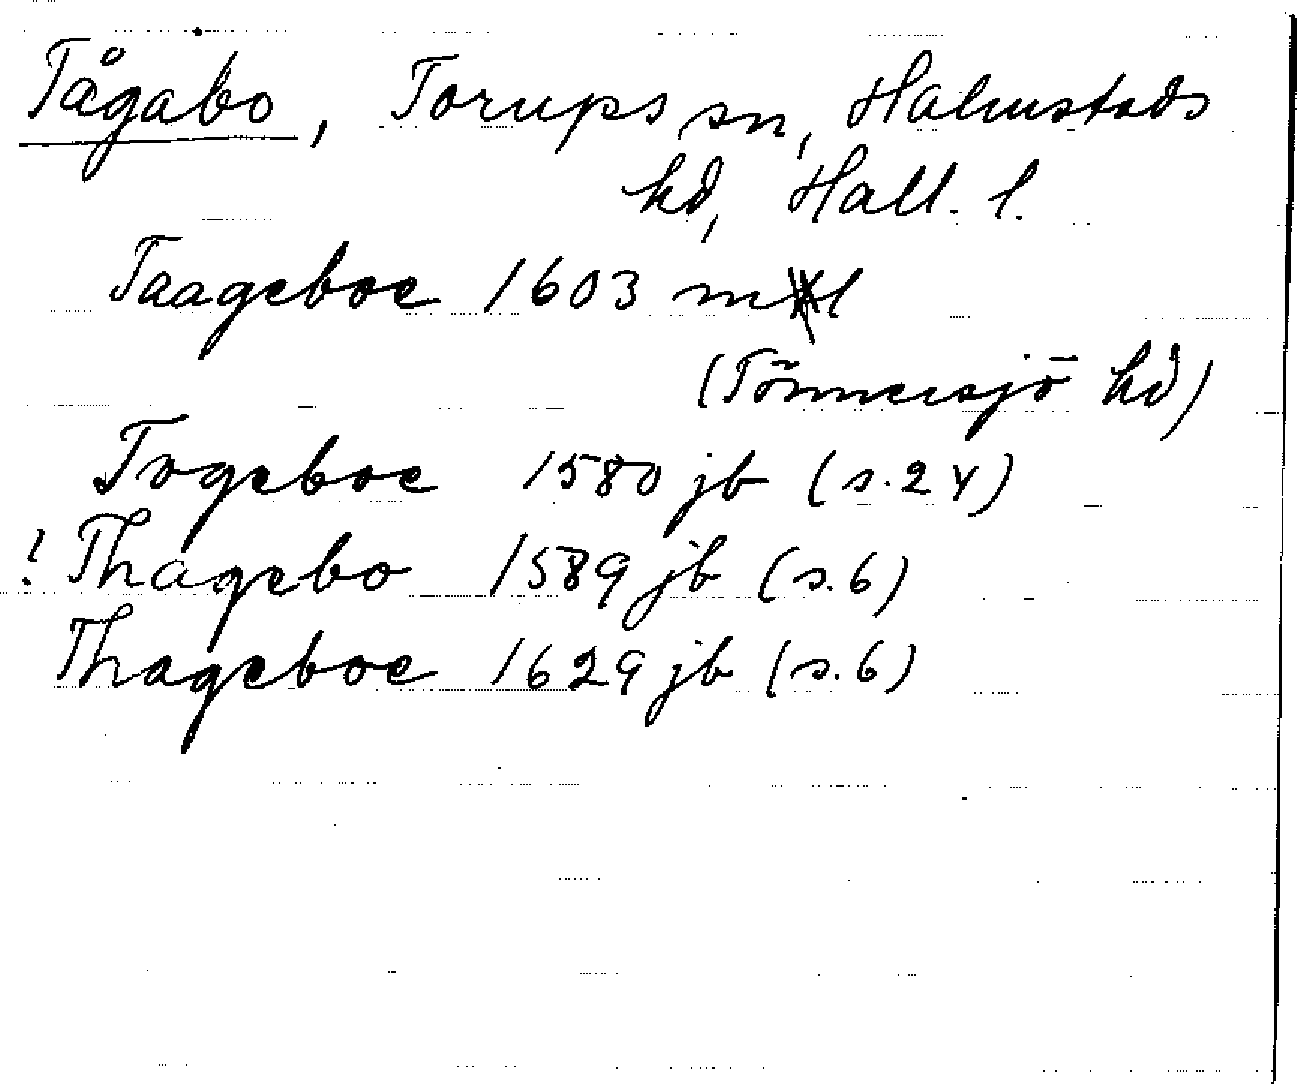 Tågabo, Torups sn, Halmstads
hd, Hall. l.
Taageboe 1603 ml
(Tönnersjö hd)
Togeboe 1580 jb (s.24)
! Thagebo 1589 jb (s.6)
Thageboe 1629 jb (s.6)